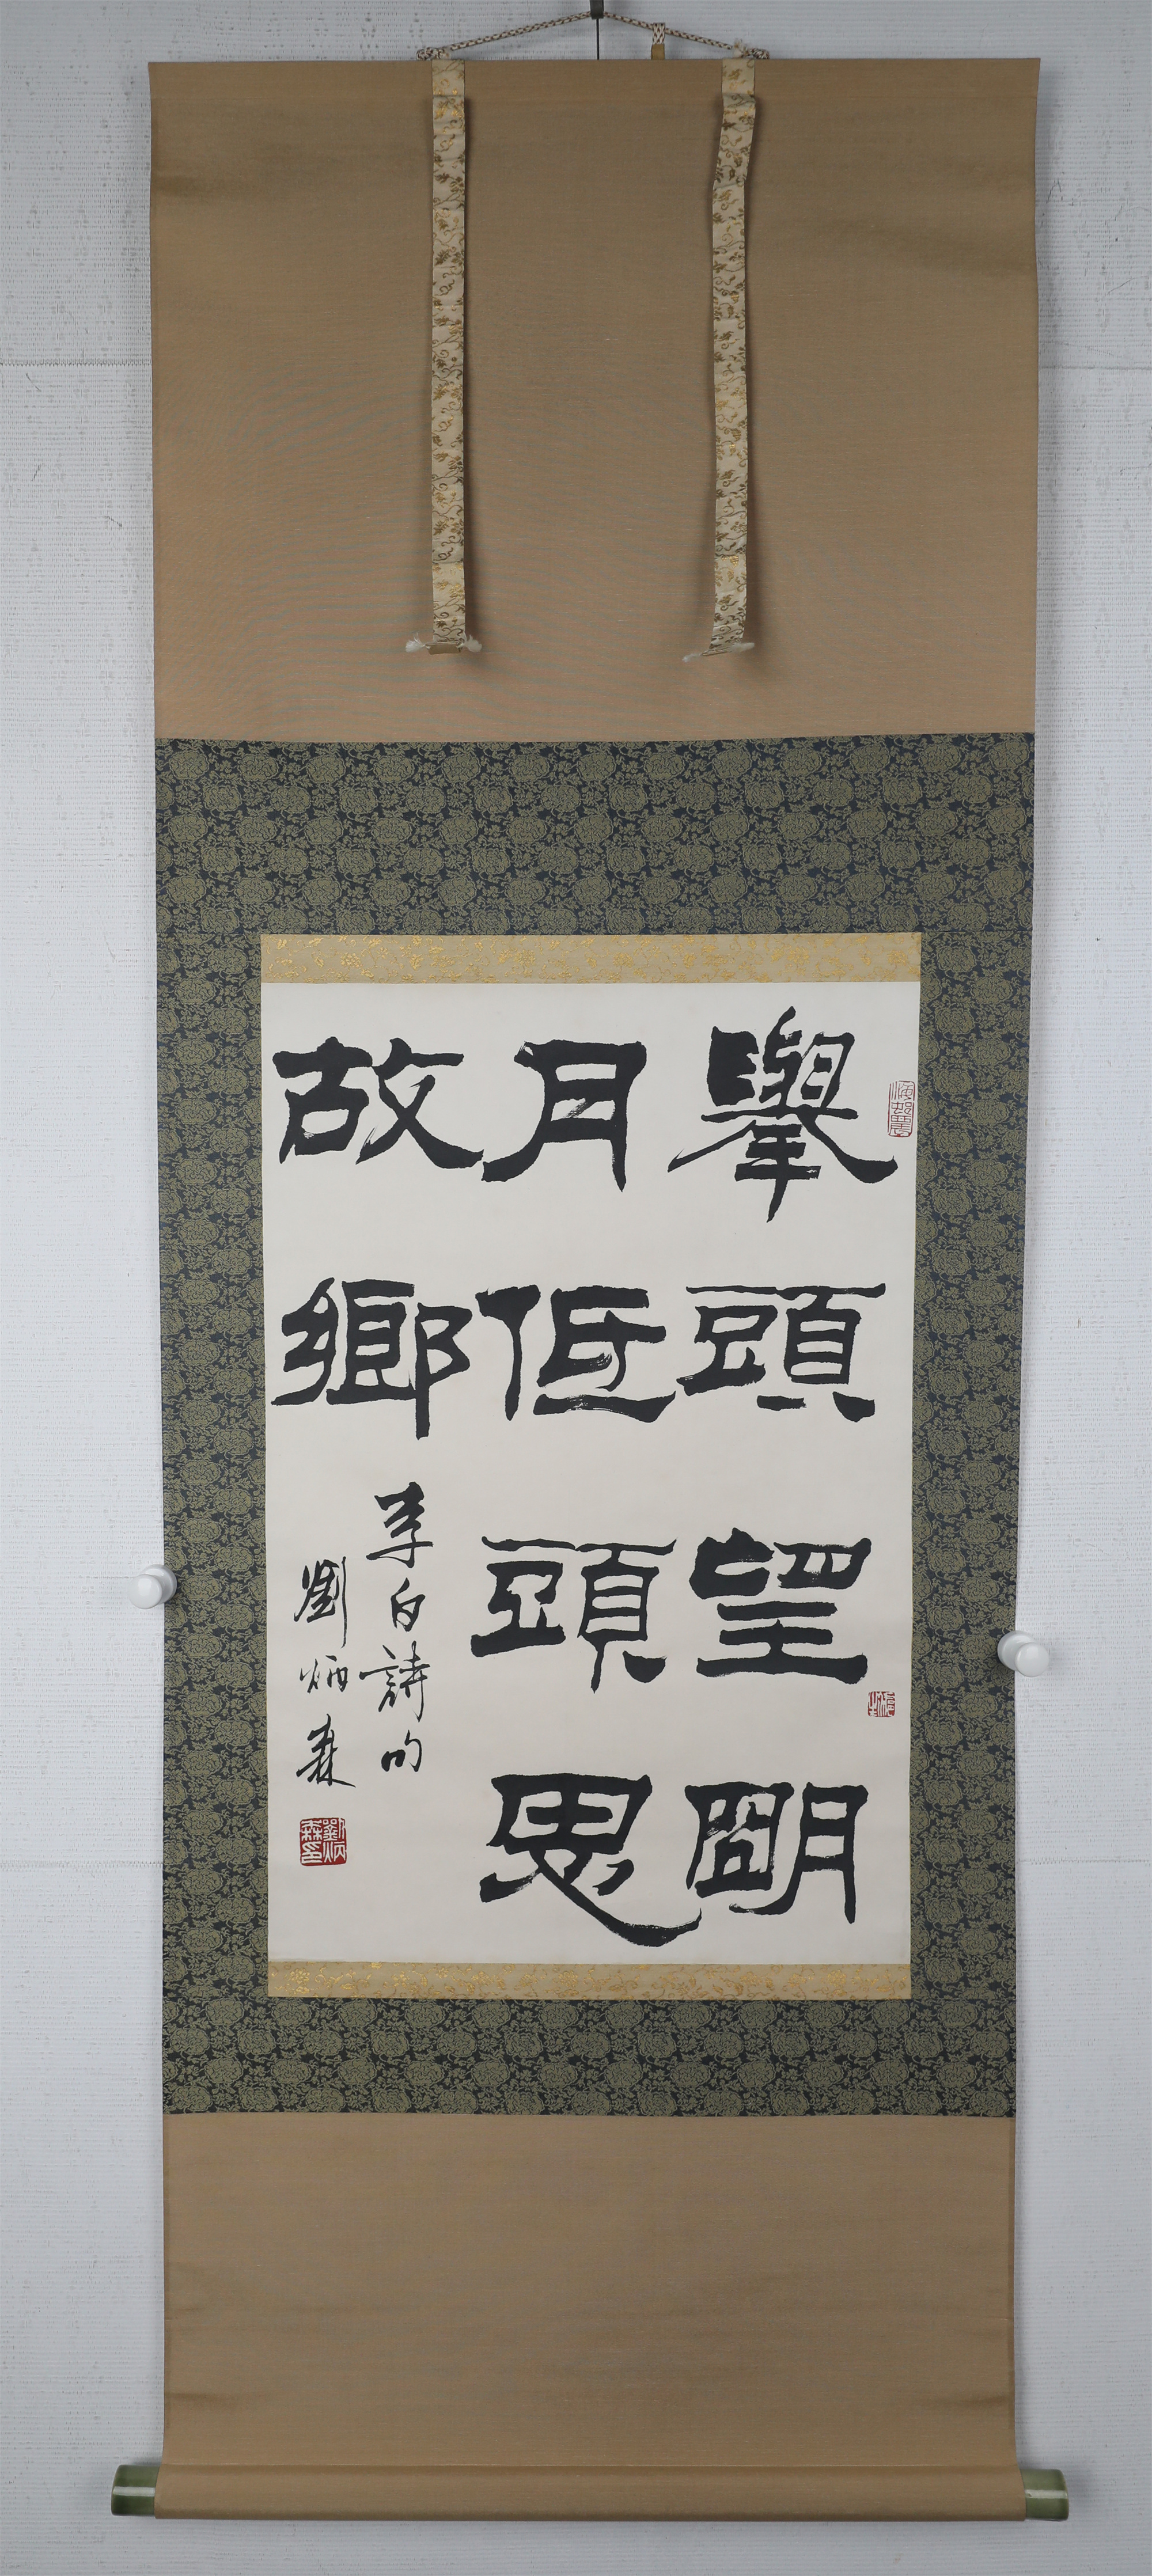 擧頭望朙
月低頭思
故鄉
李白詩句
劉炳森
劉炳森印